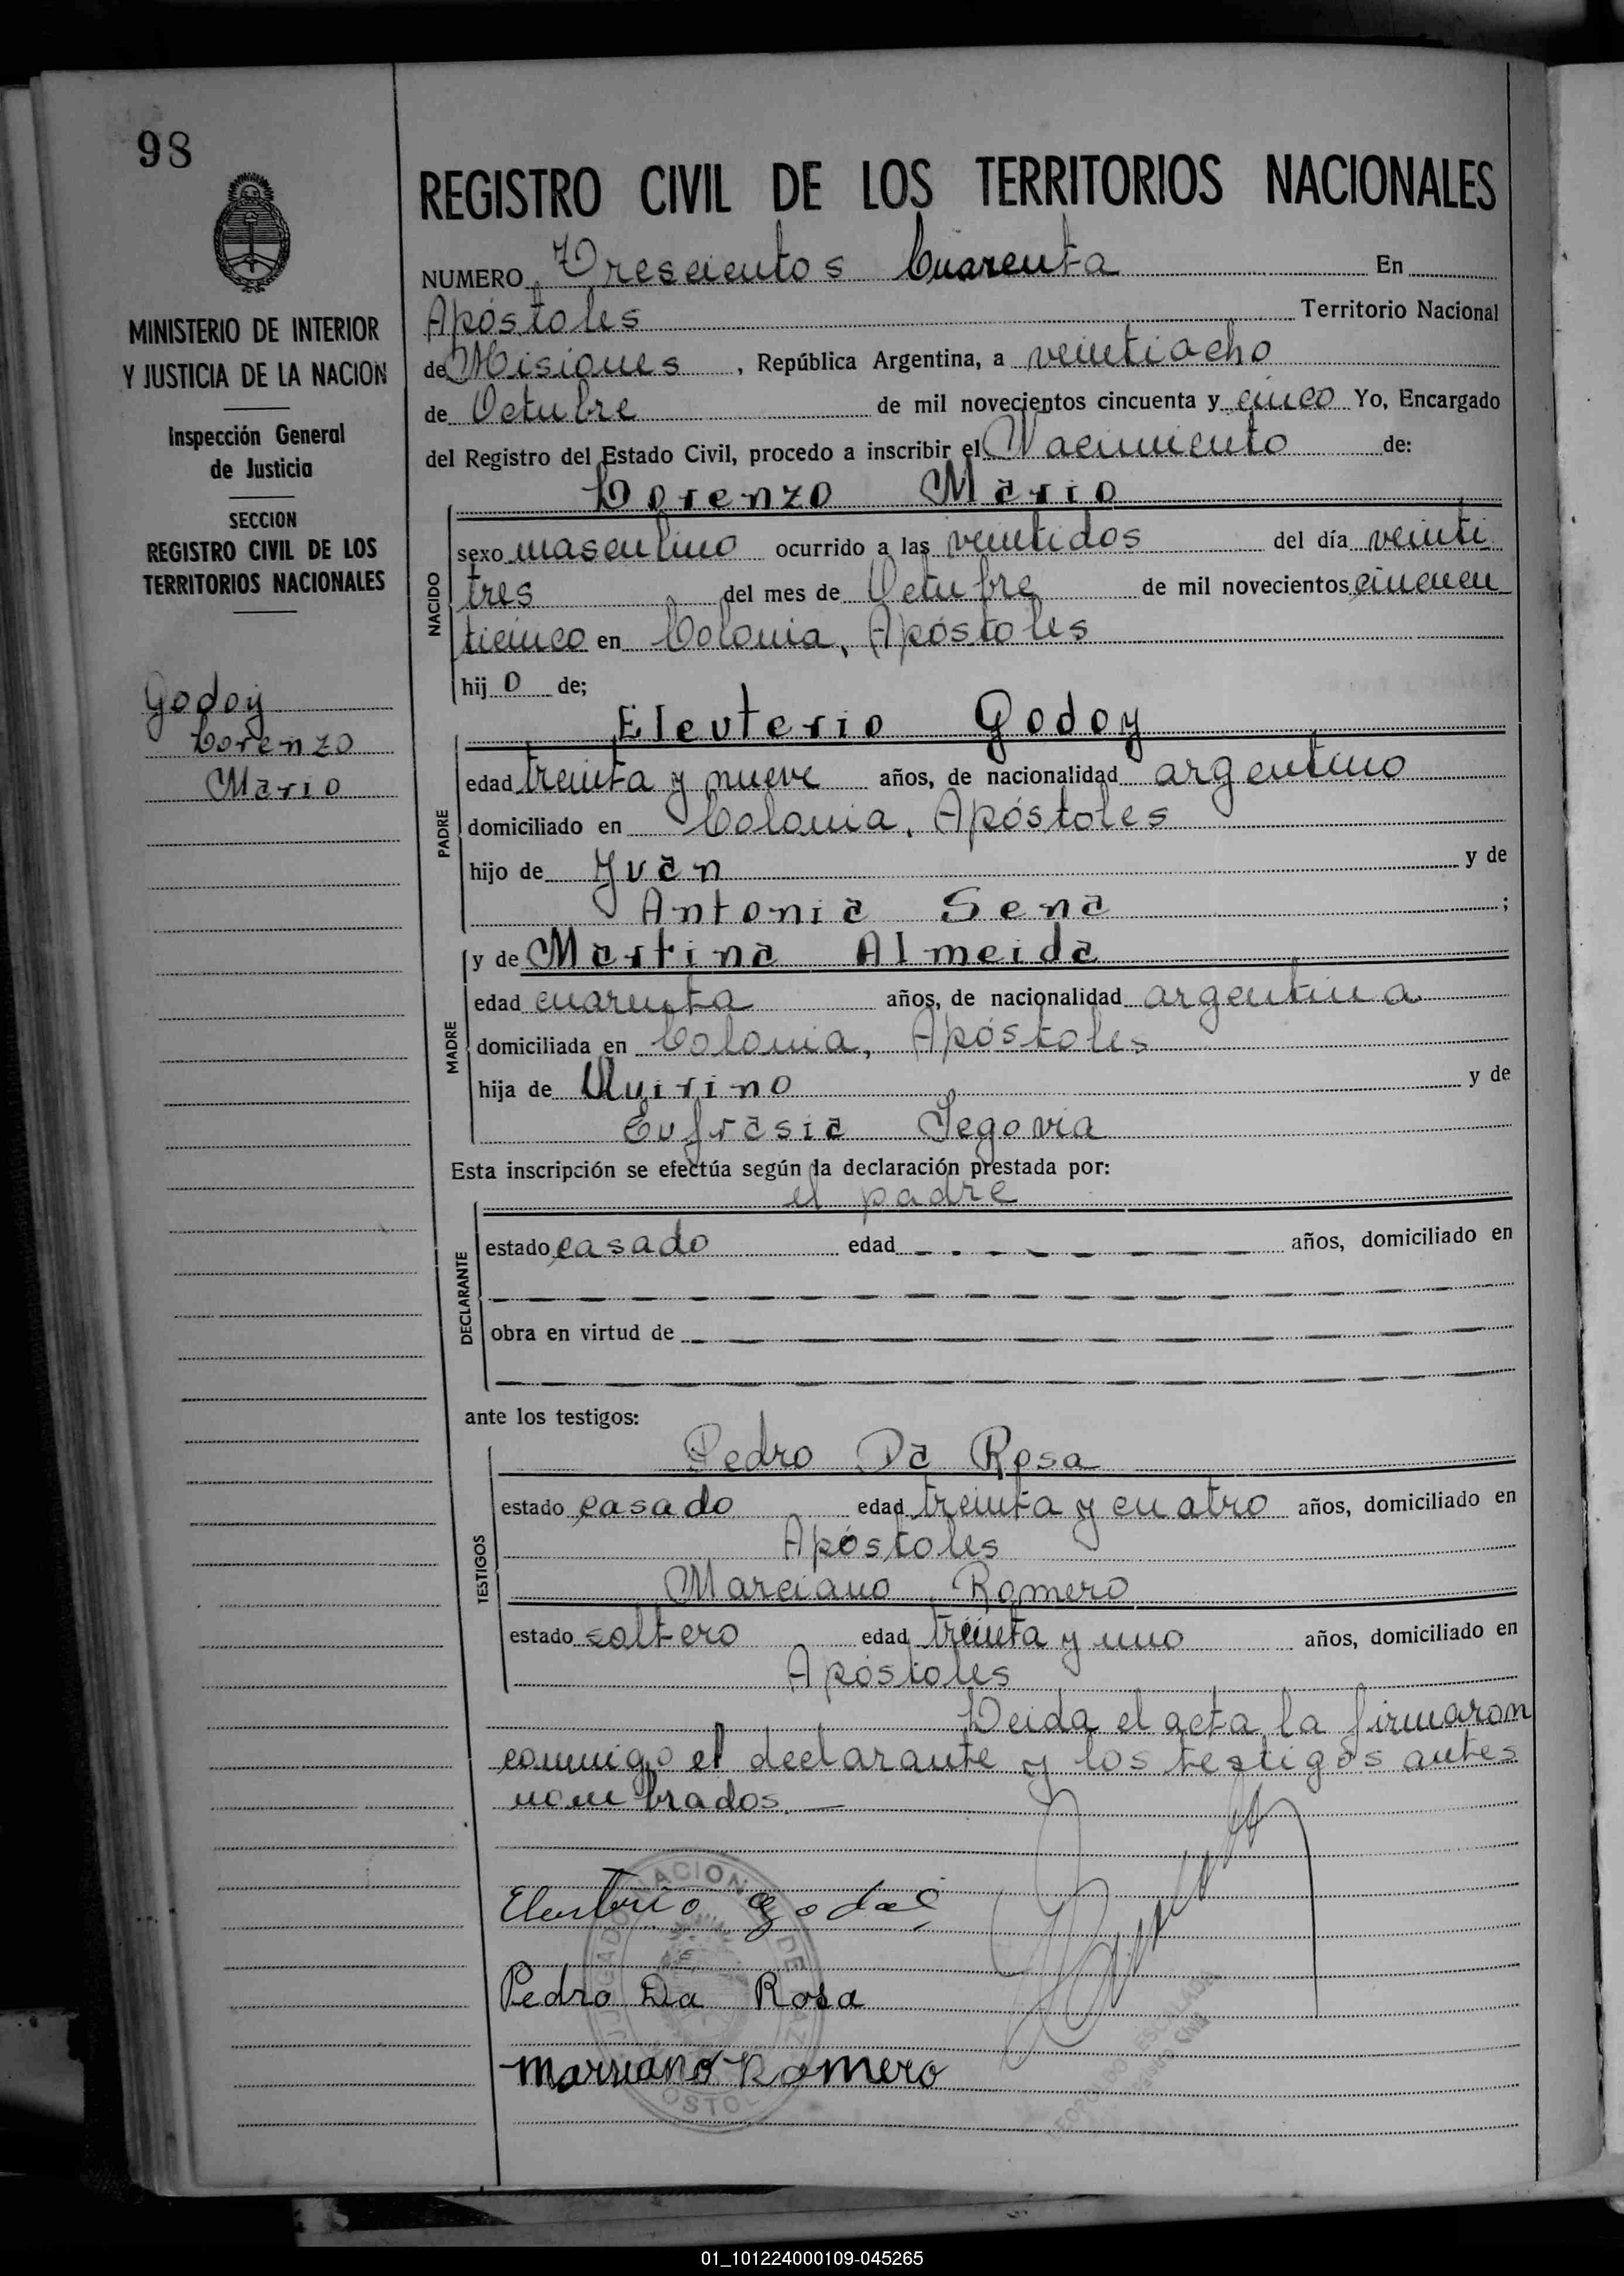 98
REGISTRO CIVIL DE LOS TERRITORIOS NACIONALES
NUMERO Trescientos Cuarenta En
Apóstoles Territorio Nacional
de Misiones, República Argentina, a veintiocho
de Octubre de mil novecientos cincuenta y cinco Yo, Encargado
del Registro del Estado Civil, procedo a inscribir el Nacimiento de:
Lorenzo Mario
MINISTERIO DE INTERIOR
Y JUSTICIA DE LA NACION
Inspección General
de Justicia
SECCION
REGISTRO CIVIL DE LOS
TERRITORIOS NACIONALES
Godoy
Lorenzo
Mario
NACIDO
sexo masculino ocurrido a las veintidos del día veinti
tres del mes de Octubre de mil novecientos cincuen
ticinco en Colonia, Apóstoles
hij o de;
Eleuterio Godoy
PADRE
edad treinta y nueve años, de nacionalidad argentino
domiciliado en Colonia, Apóstoles
hijo de Juan y de
Antonia Sena ;
MADRE
y de Martina Almeida
edad cuarenta años, de nacionalidad argentina
domiciliada en Colonia, Apóstoles
hija de Quirino y de
Eufrasia Segovia
Esta inscripción se efectúa según la declaración prestada por:
el padre
DECLARANTE
estado casado edad años, domiciliado en
obra en virtud de
ante los testigos:
Pedro Da Rosa
TESTIGOS
estado casado edad treinta y cuatro años, domiciliado en
Apóstoles
Marciano Romero
estado soltero edad treinta y uno años, domiciliado en
Apóstoles
Leida el acta la firmaron
conmigo el declarante y los testigos antes
nombrados.
Eleuterio Godoi
Pedro Da Rosa
Marciano Romero
01_101224000109-045265